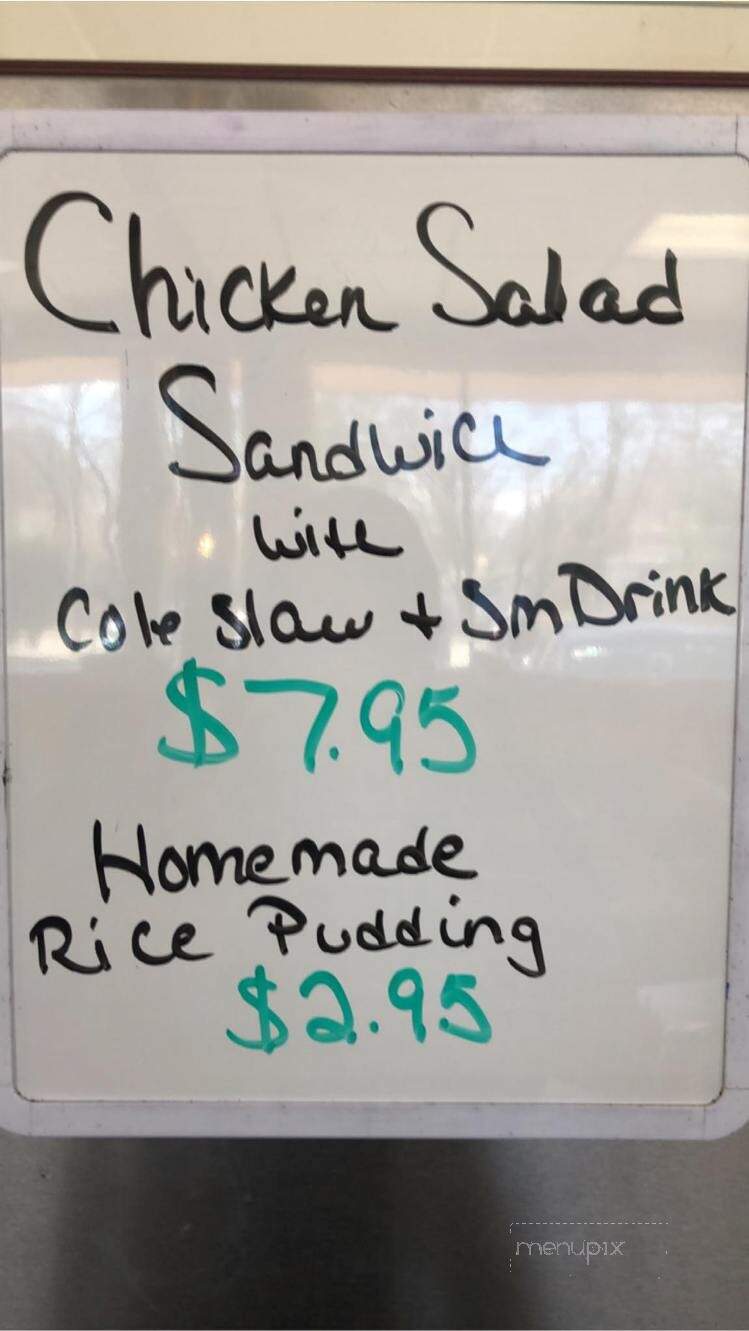 Chicken Salad
Sandwich
with
Cole Slaw + Sm Drink
$7.95
Homemade
Rice Pudding
$2.95
menupix